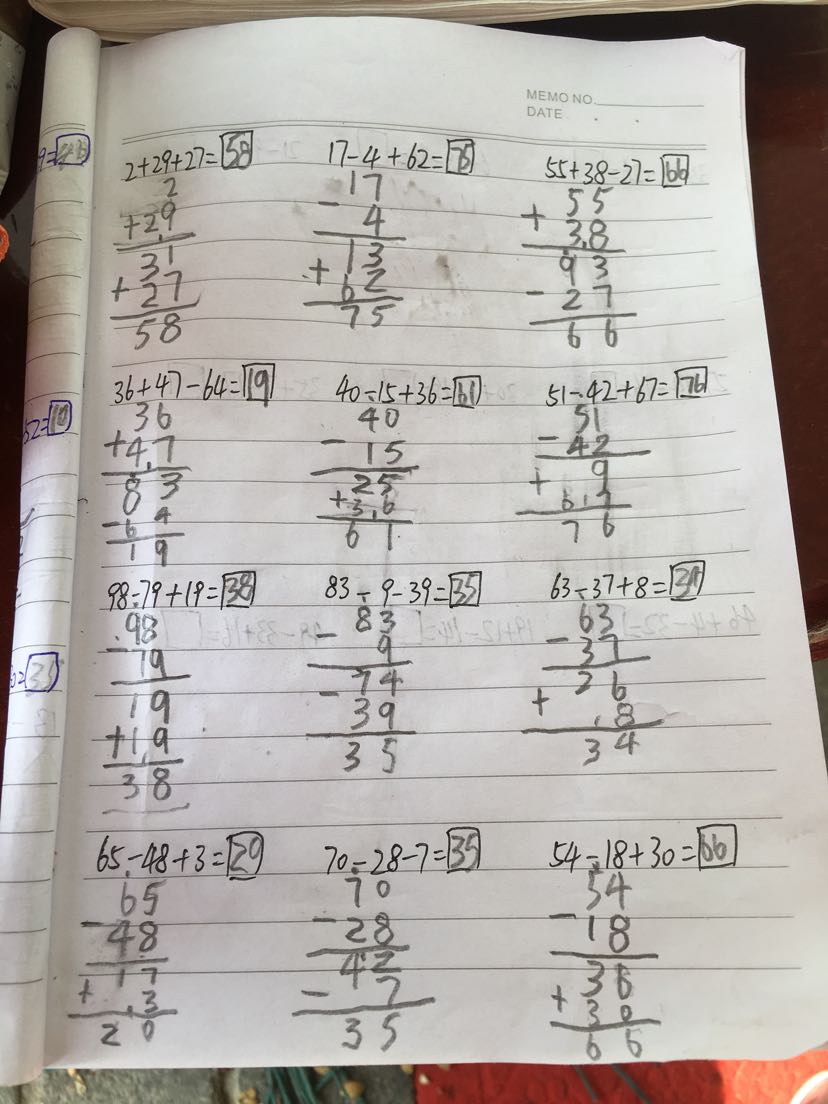 MEMO NO.
DATE
2+29+27=58
17-4+62=75
55+38-27=66
2
+29
31
+27
58
17
- 4
13
+62
75
55
+38
93
-27
66
36+47-64=19
40-15+36=61
51-42+67=76
36
+47
83
-64
19
40
-15
25
+36
61
51
-42
9
+67
76
98-79+19=38
83-9-39=35
63-37+8=34
98
-79
19
+19
38
83
- 9
74
-39
35
63
-37
26
+ 8
34
65-48+3=20
70-28-7=35
54-18+30=66
65
-48
17
+ 3
20
70
-28
42
- 7
35
54
-18
36
+30
66